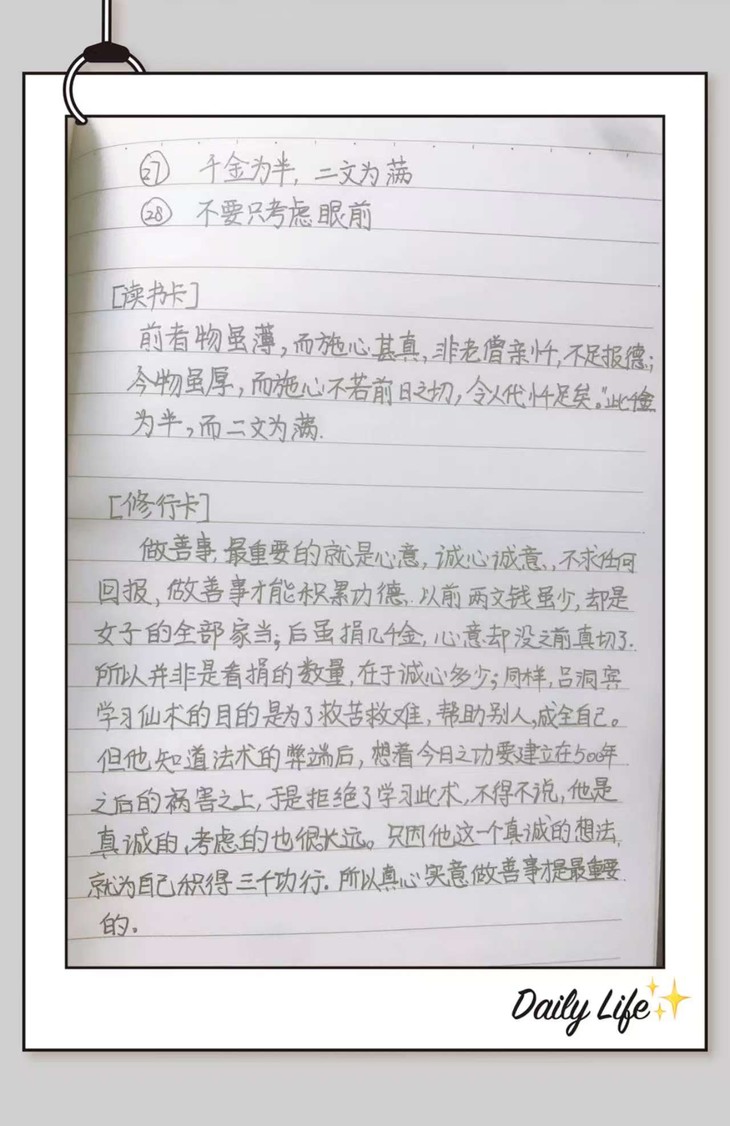 ㉗ 千金为半，二文为满
㉘ 不要只考虑眼前
［读书卡］
前者物虽薄，而施心甚真，非老僧亲忏，不足报德；
今物虽厚，而施心不若前日之切，令人代忏足矣。”此千金
为半，而二文为满.
［修行卡］
做善事，最重要的就是心意，诚心诚意、不求任何
回报，做善事才能积累功德. 以前两文钱虽少，却是
女子的全部家当；后虽捐几千金，心意却没之前真切了.
所以并非是看捐的数量，在于诚心多少；同样，吕洞宾
学习仙术的目的是为了救苦救难，帮助别人，成全自己。
但他知道法术的弊端后，想着今日之功要建立在500年
之后的祸害之上，于是拒绝了学习此术，不得不说，他是
真诚的，考虑的也很长远。只因他这一个真诚的想法，
就为自己积得三千功行. 所以真心实意做善事才是最重要
的。
Daily Life